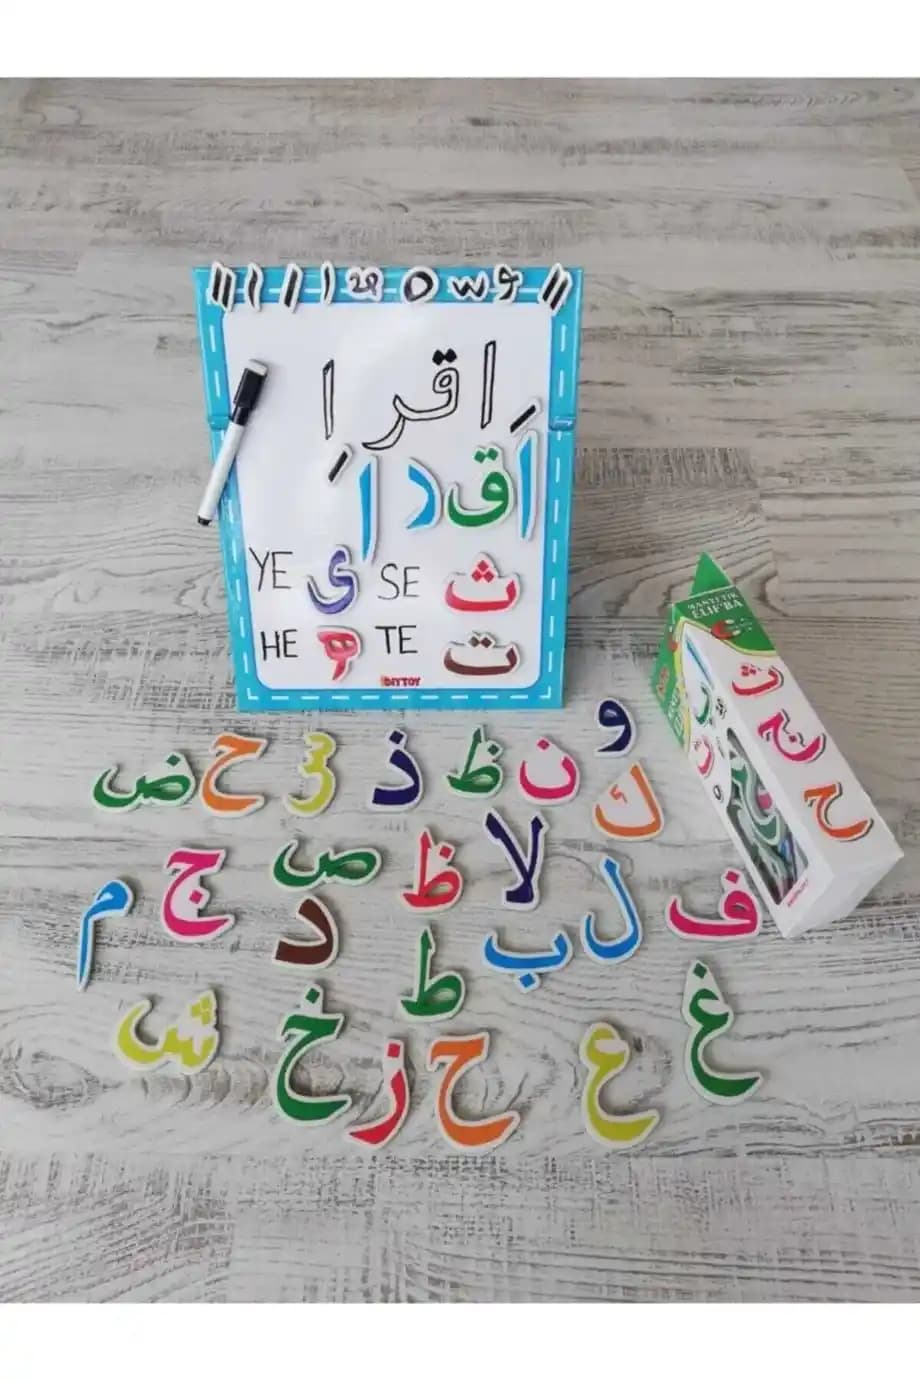 اقرا
اَ ق ر ا
YE ى SE ث
HE ه TE ت
DIYTOY
MANYETİK
ELİF'BA
ث
ج
ح
و
ك ن ظ ذ س ح ض
ف ل لا ظ ص ج م
ب ط د
غ ع ح ز خ ش